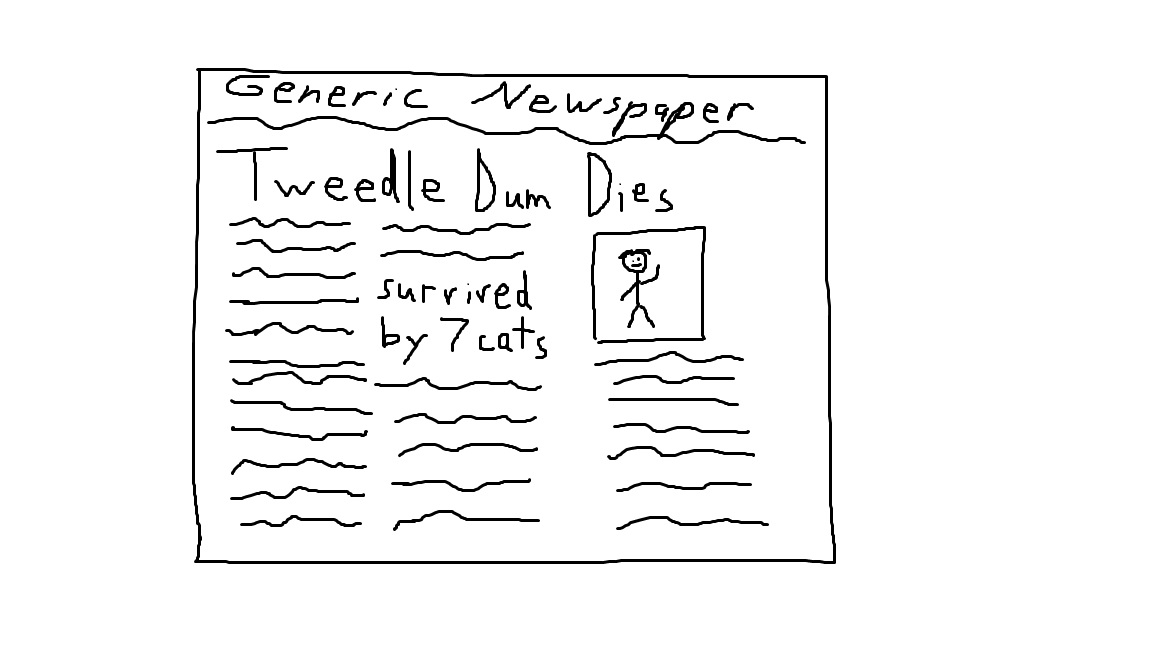 Generic Newspaper
Tweedle Dum Dies
survived
by 7 cats